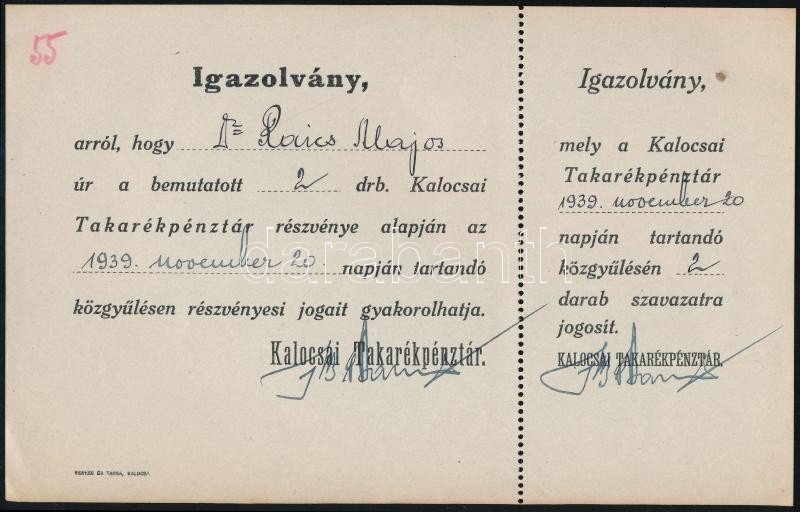 55
Igazolvány,
arról, hogy Dr Raics Alajos
úr a bemutatott 2 drb. Kalocsai
Takarékpénztár részvénye alapján az
1939. november 20. napján tartandó
közgyűlésen részvényesi jogait gyakorolhatja.
Kalocsai Takarékpénztár.
ÉS TÁRSA, KALOCSA
Igazolvány,
mely a Kalocsai
Takarékpénztár
1939. november 20
napján tartandó
közgyűlésén 2
darab szavazatra
jogosít.
KALOCSAI TAKARÉKPÉNZTÁR.
darabanth